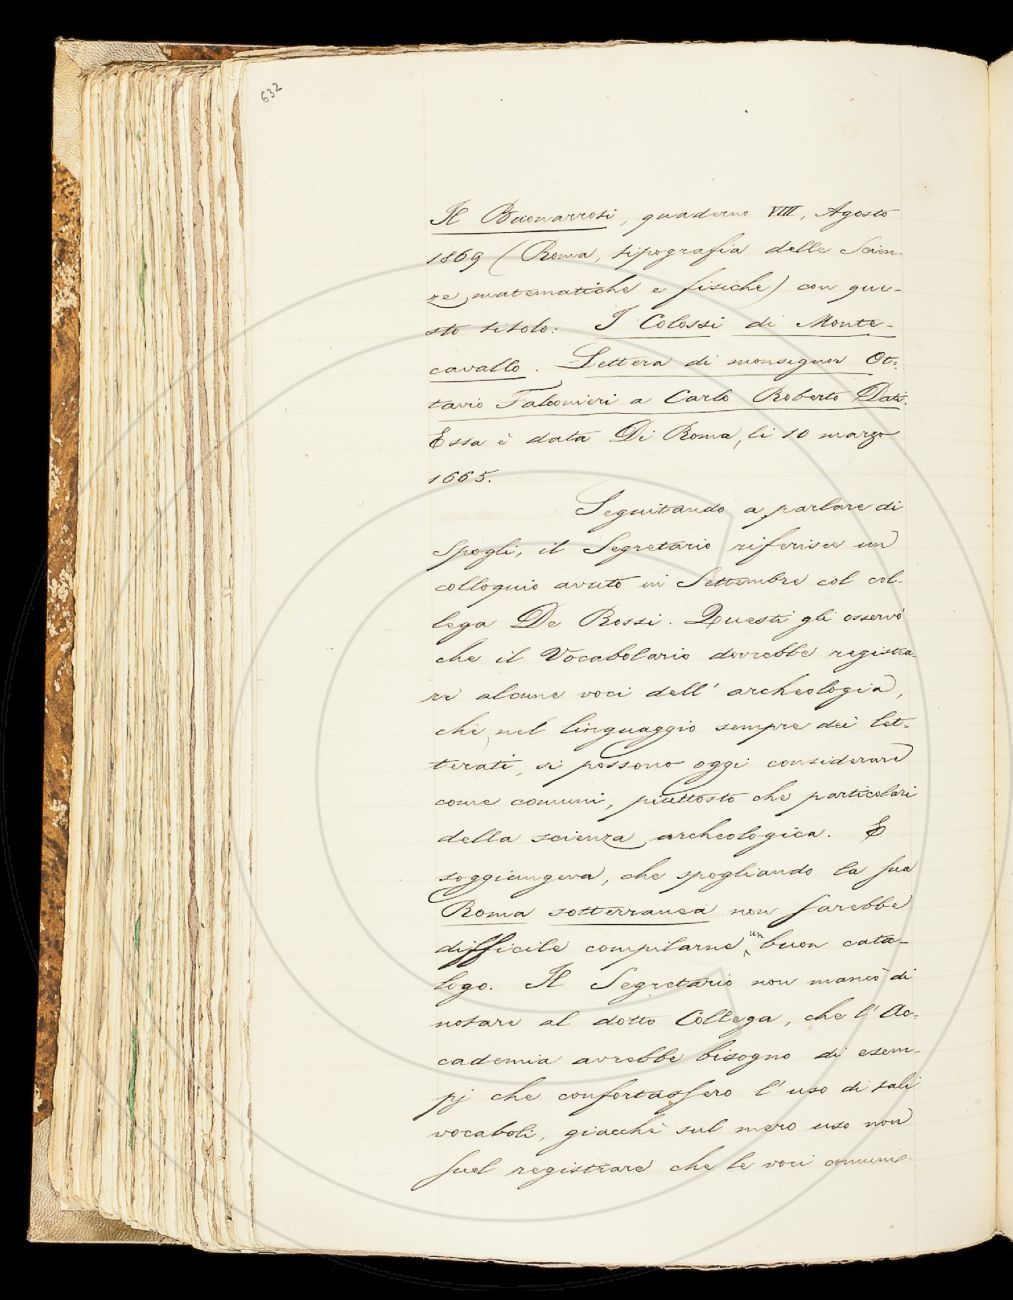 632
Il Buonarroti, quaderno VIII, Agosto
1869 (Roma, tipografia delle Scien-
ze matematiche e fisiche) con que-
sto titolo: I Colossi di Monte-
cavallo. Lettera di monsignor Ot-
tavio Falconieri a Carlo Roberto Dati.
Essa è data Di Roma, li 10 marzo
1665.
Seguitando a parlare di
Spogli, il Segretario riferisce un
colloquio avuto in Settembre col col-
lega De Rossi. Questi gli osservò
che il Vocabolario dovrebbe registra-
re alcune voci dell' archeologia,
che, nel linguaggio sempre dei let-
terati, si possono oggi considerare
come comuni, piuttosto che particolari
della scienza archeologica. E
soggiungeva, che spogliando la sua
Roma sotterranea non sarebbe
difficile compilarne un buon cata-
logo. Il Segretario non mancò di
notare al dotto Collega, che l' Ac-
cademia avrebbe bisogno di esem-
pj che confortassero l' uso di tali
vocaboli, giacchè sul mero uso non
suol registrare che le voci comuni